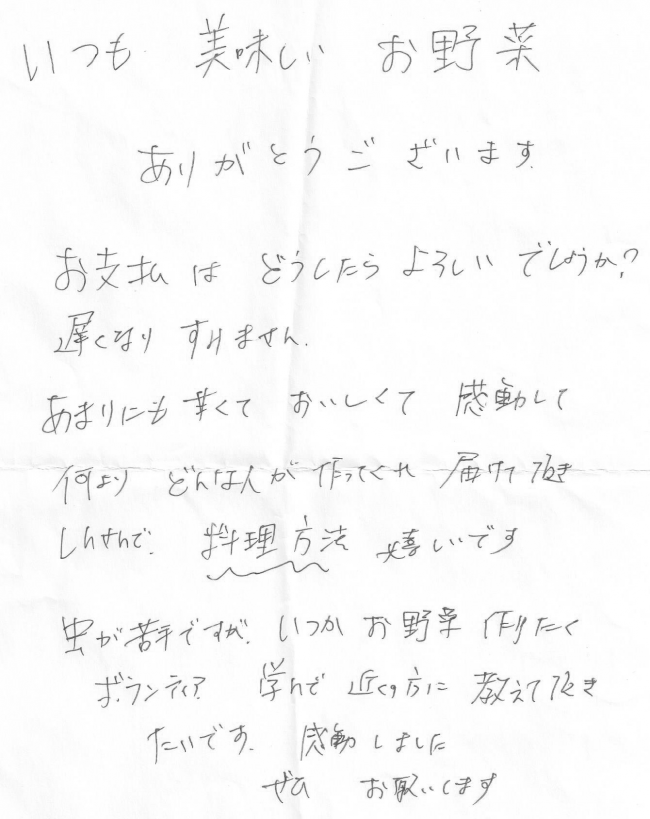 いつも 美味しい お野菜
ありがとうございます
お支払は どうしたら よろしい でしょうか?
遅くなり すみません.
あまりにも 辛くて おいしくて 感動して
何より どんな人が 作ってくれ 届けて頂き
しんせんで. 料理方法 嬉しいです
虫が苦手ですが. いつか お野菜 作りたく
ボランティア 学んで 近くの方に 教えて頂き
たいです. 感動しました
ぜひ お願いします